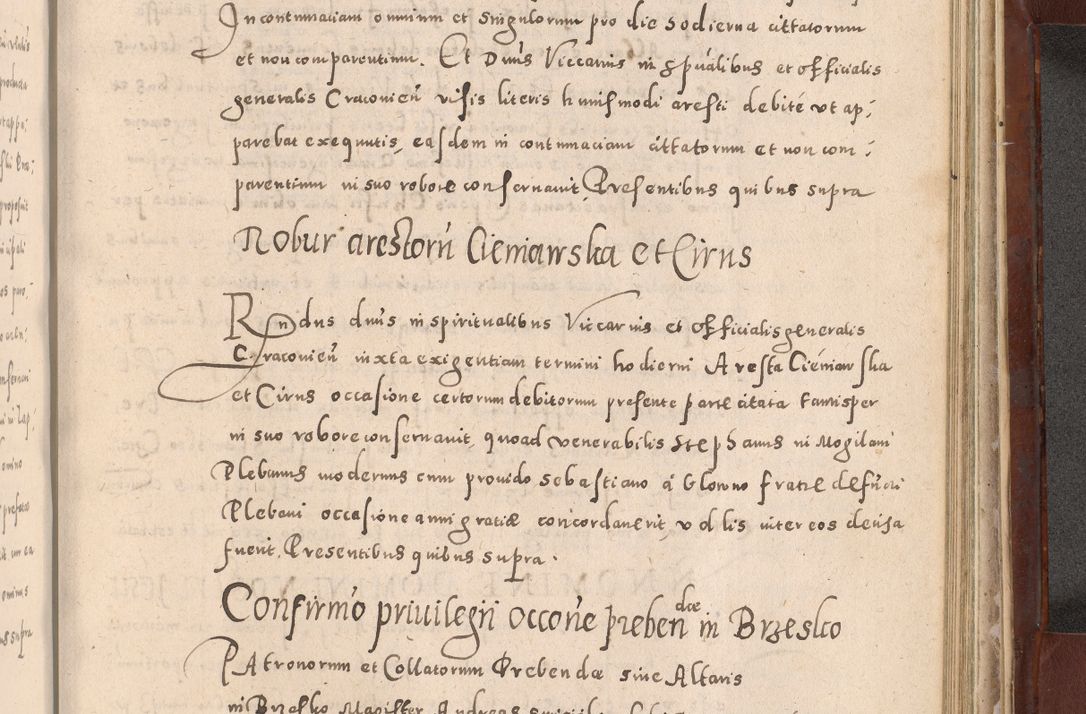 In contumaciam omnium et singulorum pro die hodierna cittatorum
et non comparentium. Et Dnus Viccarius in spualibus et officialis
generalis Cracovien visis literis huiusmodi aresti debite ut ap:
parebat exequutis, easdem in contumaciam cittatorum et non com:
parentium in suo robore conservavit, Presentibus quibus supra
Robur arestoru Cieniawska et Cirus
Rndus dnus in spiritualibus Viccarius et officialis generalis
Cracovien iuxta exigentiam termini hodierni Aresta Cieniawska
et Cirus occasione certorum debitorum presente parte citata tamisper
in suo robore conservavit, quoad venerabilis Stephanus in Mogilani
Plebanus modernus cum provido Sebastiano a Glowno fratre defuncti
Plebani occasione anni gratiæ concordaverit, vel lis inter eos decisa
fuerit, Presentibus quibus supra.
Confirmo privilegii occone prebendæ in Brzesko
Patronorum et Collatorum Prebendæ sive Altaris
in Brzesko Magister Andreas